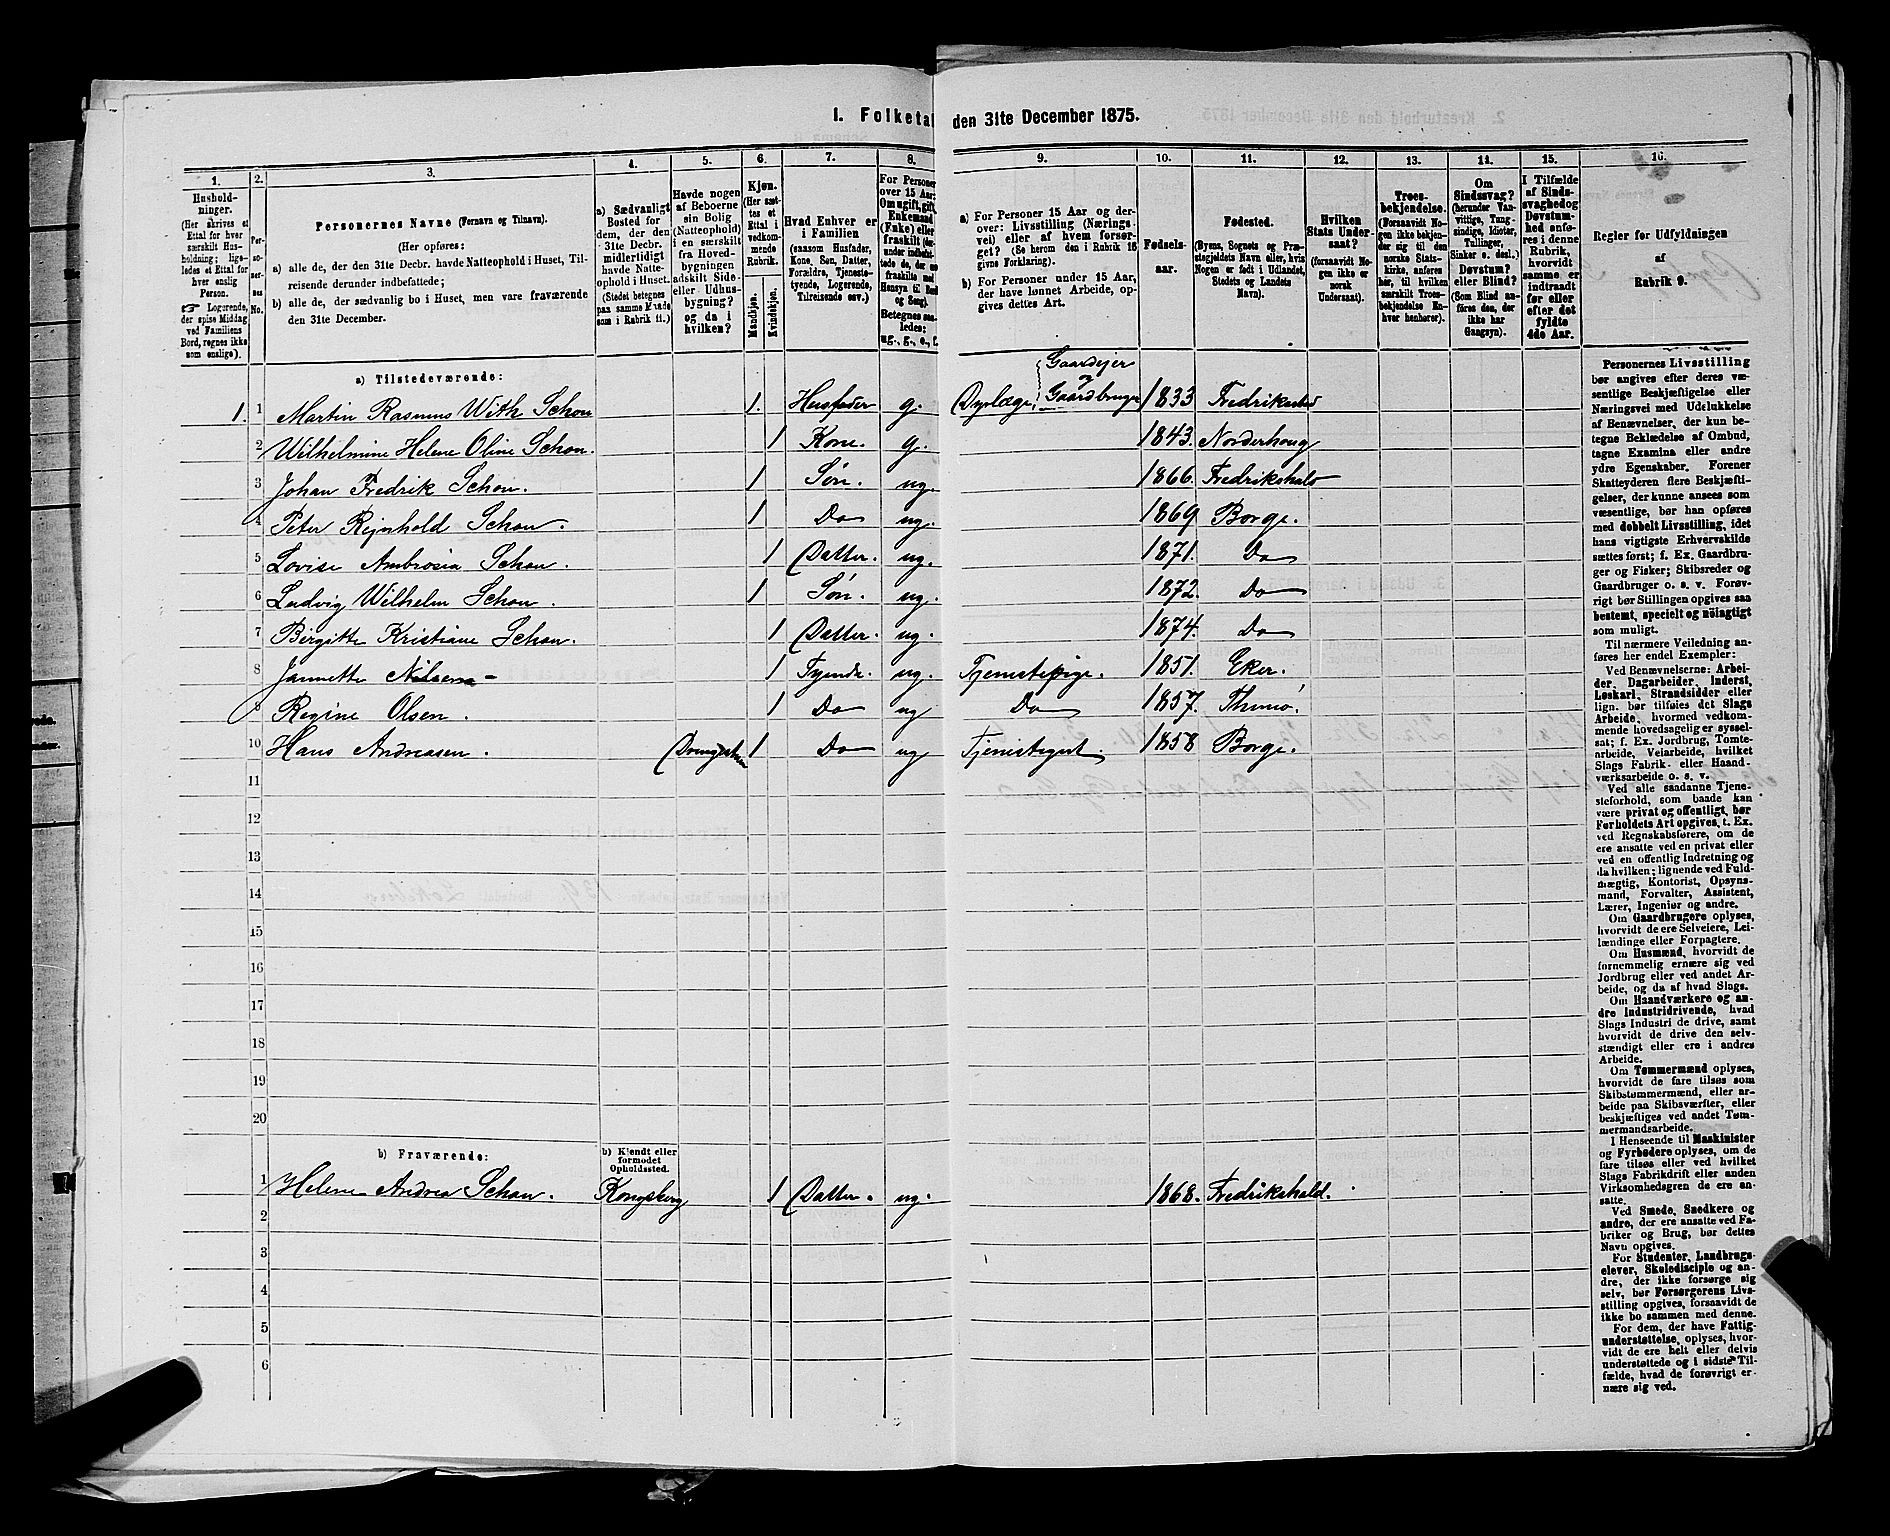 I. Folketal den 31te December 1875.
1. 2. 3. 4. 5. 6. 7. 8. 9. 10. 11. 12. 13. 14. 15. 16.
Hushold-
ninger.
(Her skrives et
Ettal for hver
særskilt Hus-
holdning; lige-
ledes et Ettal for
hver enslig
Person.
☞ Logerende,
der spise Middag
ved Familiens
Bord, regnes ikke
som enslige).
Per-
soner-
nes
No.
Personernes Navne (Fornavn og Tilnavn).
(Her opføres:
a) alle de, der den 31te Decbr. havde Natteophold i Huset, Til-
reisende derunder indbefattede;
b) alle de, der sædvanlig bo i Huset, men vare fraværende
den 31te December.
a) Sædvanligt
Bosted for
dem, der den
31te Decbr.
midlertidigt
havde Natte-
ophold i Huset.
(Stedet betegnes
paa samme Maade
som i Rubrik 11.)
Havde nogen
af Beboerne
sin Bolig
(Natteophold)
i en særskilt
fra Hoved-
bygningen
adskilt Side-
eller Udhus-
bygning?
og da i
hvilken?
Kjøn.
(Her sæt-
tes et
Ettal i
vedkom-
mende
Rubrik.
Mandkjøn.
Kvindekjøn.
Hvad Enhver er
i Familien
(saasom Husfader,
Kone, Søn, Datter,
Forældre, Tjeneste-
tyende, Logerende,
Tilreisende osv.)
For Personer
over 15 Aar:
Om ugift, gift,
Enkemand
(Enke) eller
fraskilt
Betegnes saa-
ledes:
ug., g., e., f.
a) For Personer 15 Aar og der-
over: Livsstilling (Nærings-
vei) eller af hvem forsør-
get? (Se herom den i Rubrik 16
givne Forklaring).
b) For Personer under 15 Aar,
der have lønnet Arbeide, op-
gives dettes Art.
Fødsels-
aar.
Fødested.
(Byens, Sognets og Præ-
stegjeldets Navn eller, hvis
Nogen er født i Udlandet,
Stedets og Landets
Navn).
Hvilken
Stats Under-
saat?
(forsaavidt No-
gen ikke er
norsk
Undersaat).
Troes-
bekjendelse.
(Forsaavidt No-
gen ikke bekjen-
der sig til den
norske Stats-
kirke, anføres
her, til hvilken
særskilt Troes-
bekjendelse En-
hver henhører).
Om
Sindssvag?
(herunder Van-
vittige, Tung-
sindige, Idioter,
Tullinger,
Sinker o. desl.)
Døvstum?
eller Blind?
(Som Blind an-
føres den, der
ikke har
Gangsyn).
I Tilfælde
af Sinds-
svaghed og
Døvstum-
hed anfø-
res i denne
Rubrik,
hvorvidt
samme er
indtraadt
før eller
efter det
fyldte
4de Aar.
Regler for Udfyldningen
af
Rubrik 9.
a) Tilstedeværende:
1. 1 Martin Rasmus With Schou 1. Husfader g. Dyrlæge, Gaardejer & Gaardbruger 1833 Fredrikstad
2 Wilhelmine Helene Oline Schou. 1 Kone. g. 1843. Norderhoug
3 Johan Fredrik Schou. 1 Søn. ug. 1866. Fredrikshald
4 Peter Rejnhold Schou. 1 Do ug. 1869 Borge.
5 Lovise Ambrosia Schou. 1 Datter. ug. 1871. Do
6 Ludvig Wilhelm Schou. 1 Søn. ug. 1872. Do
7 Birgitte Kristiane Schou. 1 Datter. ug. 1874. Do
8 Jannette Nilsen 1 Tyende ug. Tjenestepige. 1851. Eker.
9 Regine Olsen. 1 Do ug Do 1857. Thunø.
10 Hans Andreasen. 1 Do ug Tjenestegut. 1858 Borge.
11
12
13
14
15
16
17
18
19
20
b) Fraværende:
b) Kjendt eller
formodet
Opholdssted.
1 Helene Andrea Schou. Kongsberg 1 Datter. ug. 1868. Fredrikshald.
2
3
4
5
6
Personernes Livsstilling
bør angives efter deres væ-
sentlige Beskjæftigelse eller
Næringsvei med Udelukkelse
af Benævnelser, der kun be-
tegne Beklædelse af Ombud,
tagne Examina eller andre
ydre Egenskaber. Forener
Skatteyderen flere Beskjæfti-
gelser, der kunne ansees som
væsentlige, bør han opføres
med dobbelt Livsstilling, idet
hans vigtigste Erhvervskilde
sættes først; f. Ex. Gaardbru-
ger og Fisker; Skibsreder og
Gaardbruger o. s. v. Forøv-
rigt bør Stillingen opgives saa
bestemt, specielt og nøiagtigt
som muligt.
Til nærmere Veiledning an-
føres her endel Exempler:
Ved Benævnelserne: Arbei-
der, Dagarbeider, Inderst,
Løskarl, Strandsidder eller
lign. bør tilføies det Slags
Arbeide, hvormed vedkom-
mende hovedsagelig er syssel-
sat; f. Ex. Jordbrug, Tomte-
arbeide, Veiarbeide, hvilket
Slags Fabrik- eller Haand-
værksarbeide o. s. v.
Ved alle saadanne Tjene-
steforhold, som baade kan
være privat og offentligt, bør
Forholdets Art opgives, t. Ex.
ved Regnskabsførere, om de
ere ansatte ved en privat eller
ved en offentlig Indretning og
da hvilken; lignende ved Fuld-
mægtig, Kontorist, Opsyns-
mand, Forvalter, Assistent,
Lærer, Ingeniør og andre.
Om Gaardbrugere oplyses,
hvorvidt de ere Selveiere, Lei-
lændinge eller Forpagtere.
Om Husmænd, hvorvidt de
fornemmelig ernære sig ved
Jordbrug eller ved andet Ar-
beide, og da af hvad Slags.
Om Haandværkere og an-
dre Industridrivende, hvad
Slags Industri de drive, samt
hvorvidt de drive den selv-
stændigt eller ere i andres
Arbeide.
Om Tømmermænd oplyses,
hvorvidt de fare tilsøs som
Skibstømmermænd, eller ar-
beide paa Skibsværfter, eller
beskjæftiges ved andet Tøm-
mermandsarbeide.
I Henseende til Maskinister
og Fyrbødere oplyses, om de
fare tilsøs eller ved hvilket
Slags Fabrikdrift eller anden
Virksomhedsgren de ere an-
satte.
Ved Smede, Snedkere og
andre, der ere ansatte ved Fa-
briker og Brug, bør dettes
Navn opgives.
For Studenter, Landbrugs-
elever, Skoledisciple og an-
dre, der ikke forsørge sig
selv, bør Forsørgerens Livs-
stilling opgives, forsaavidt de
ikke bo sammen med denne.
For dem, der have Fattig-
understøttelse, oplyses, hvor-
vidt de ere helt eller delvis
understøttede og i sidste Til-
fælde, hvad de forøvrigt er-
nære sig ved.